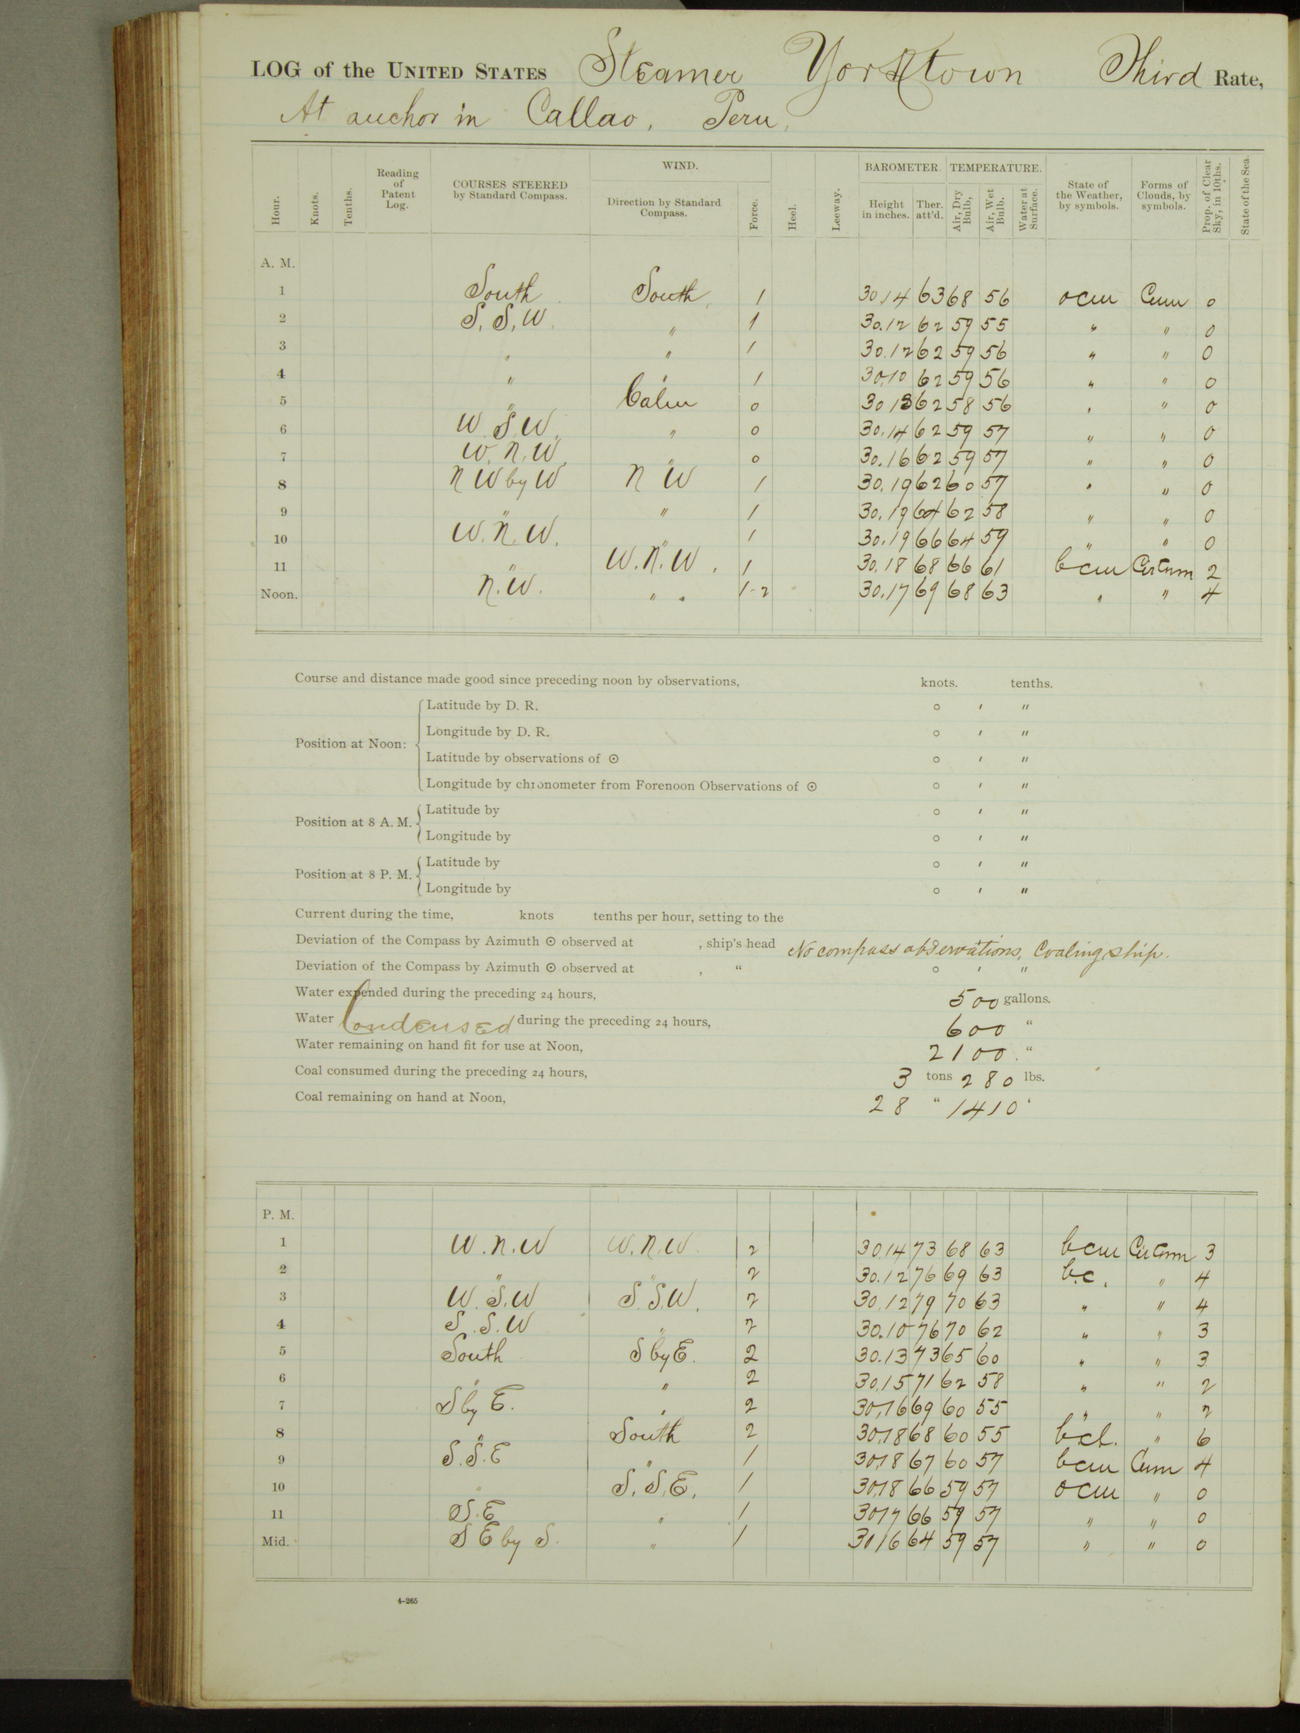 LOG of the UNITED STATES Steamer Yorktown Third Rate,
At anchor in Callao, Peru,
Hour. Knots. Tenths. Reading of Patent Log. COURSES STEERED by Standard Compass. WIND. Direction by Standard Compass. Force. Heel. Leeway. BAROMETER. Height in inches. Ther. att'd. TEMPERATURE. Air, Dry Bulb. Air, Wet Bulb. Water at Surface. State of the Weather, by symbols. Forms of Clouds, by symbols. Prop. of Clear Sky, in 10ths. State of the Sea.
A. M.
1 South South 1 30.14 63 68 56 ocm Cum 0
2 S.S.W. " 1 30.12 62 59 55 " " 0
3 " " 1 30.12 62 59 56 " " 0
4 " " 1 30.10 62 59 56 " " 0
5 " Calm 0 30 13 62 58 56 " " 0
6 W.S.W. " 0 30.14 62 59 57 " " 0
7 W.N.W. " 0 30.16 62 59 57 " " 0
8 N W by W N W 1 30.19 62 60 57 " " 0
9 " " 1 30.19 64 62 58 " " 0
10 W.N.W. " 1 30.19 66 64 59 " " 0
11 " W.N.W. 1 30.18 68 66 61 bcm Cir Cum 2
Noon. N.W. " " 1-2 30.17 69 68 63 " " 4
Course and distance made good since preceding noon by observations, knots. tenths.
Position at Noon: Latitude by D. R. ° ′ ″
Longitude by D. R. ° ′ ″
Latitude by observations of ☉ ° ′ ″
Longitude by chronometer from Forenoon Observations of ☉ ° ′ ″
Position at 8 A. M. Latitude by ° ′ ″
Longitude by ° ′ ″
Position at 8 P. M. Latitude by ° ′ ″
Longitude by ° ′ ″
Current during the time, knots tenths per hour, setting to the
Deviation of the Compass by Azimuth ☉ observed at , ship's head No compass observations, Coaling ship.
Deviation of the Compass by Azimuth ☉ observed at , " ° ′ ″
Water expended during the preceding 24 hours, 500 gallons.
Water Condensed during the preceding 24 hours, 600 "
Water remaining on hand fit for use at Noon, 2100 . "
Coal consumed during the preceding 24 hours, 3 tons 280 lbs.
Coal remaining on hand at Noon, 28 " 1410 "
P. M.
1 W.N.W W.N.W. 2 30.14 73 68 63 bcm Cir Cum 3
2 " " 2 30.12 76 69 63 b.c. " 4
3 W.S.W S.S.W. 2 30.12 79 70 63 " " 4
4 S.S.W " 2 30.10 76 70 62 " " 3
5 South S by E. 2 30.13 73 65 60 " " 3
6 " " 2 30.15 71 62 58 " " 2
7 S by E. " 2 30.16 69 60 55 " " 2
8 " South 2 30.18 68 60 55 bcl. " 6
9 S.S.E " 1 30.18 67 60 57 bcm Cum 4
10 " S.S.E. 1 30.18 66 59 57 ocm " 0
11 S.E " 1 30.17 66 59 57 " " 0
Mid. S E by S. " 1 30 16 64 59 57 " " 0
4-265